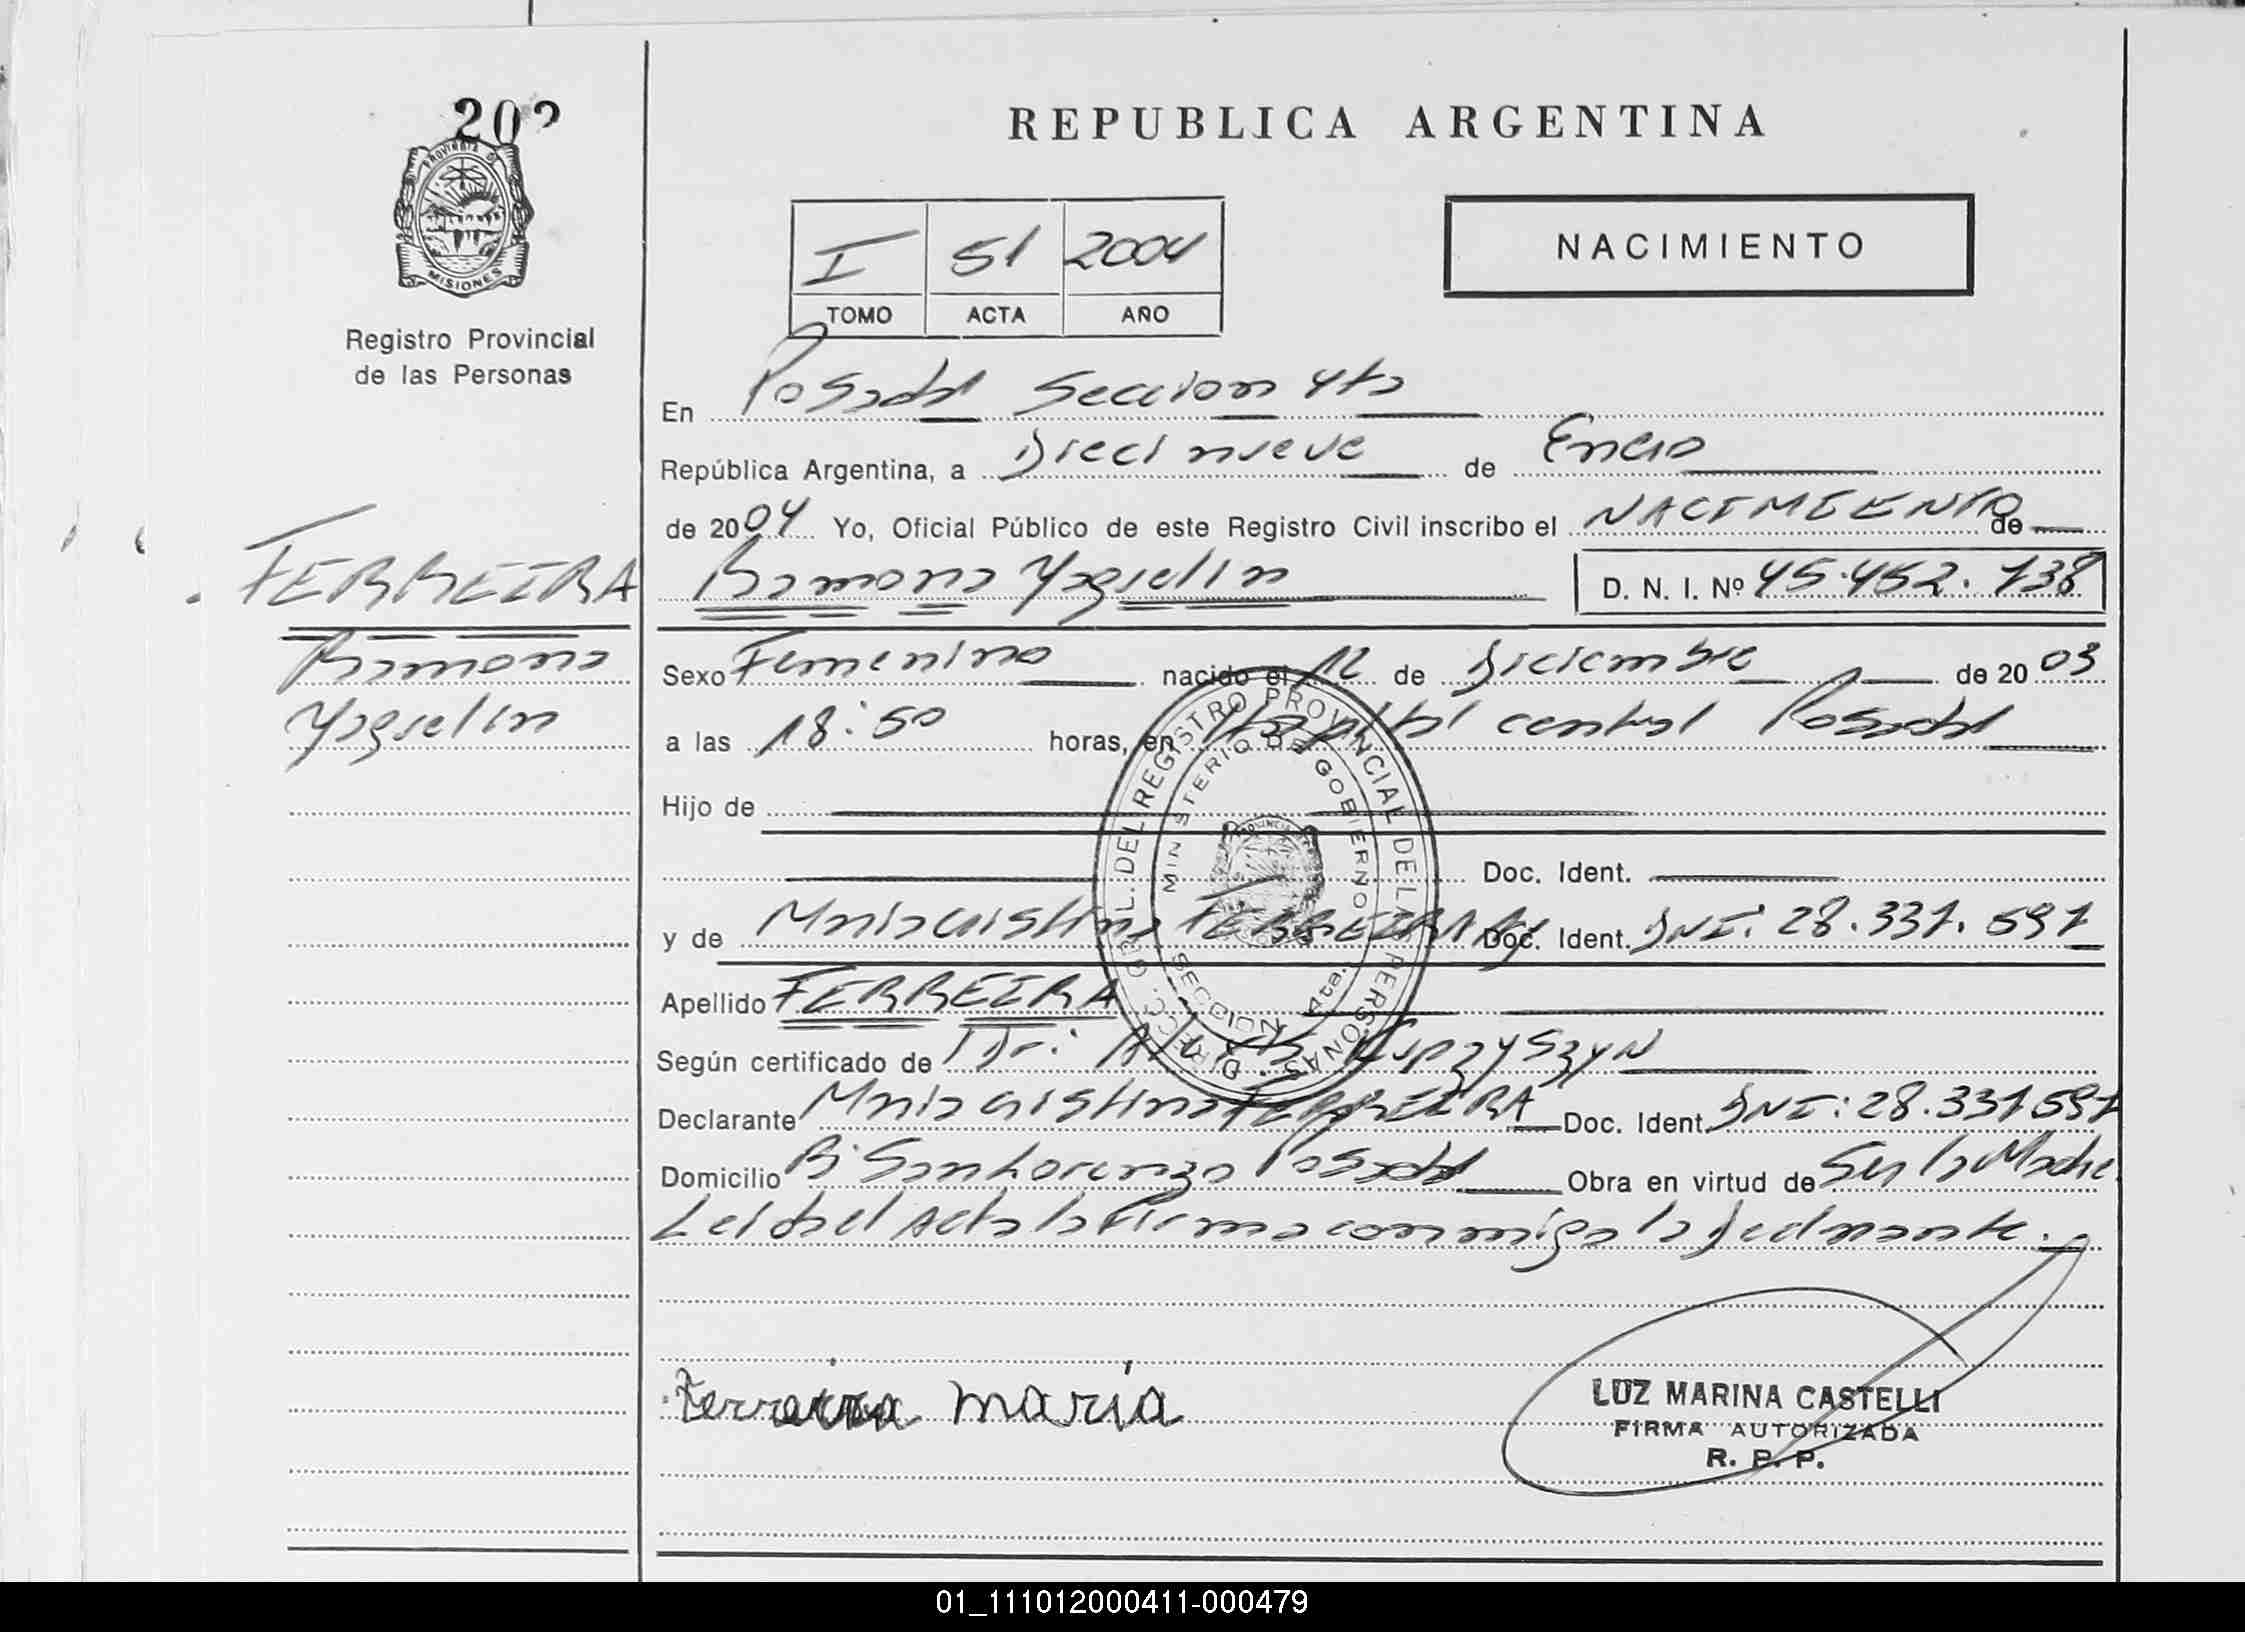 202
REPUBLICA ARGENTINA
PROVINCIA DE
MISIONES
Registro Provincial
de las Personas
I 51 2004
TOMO ACTA AÑO
NACIMIENTO
En Posadas Seccion 4ta
República Argentina, a Diecinueve de Enero
de 2004 Yo, Oficial Público de este Registro Civil inscribo el NACIMIENTO de
FERREIRA
Ramona Yaquelin D. N. I. Nº 45.452.738
Ramona
Yaquelin
Sexo Femenino nacido el 12 de Diciembre de 2003
a las 18:50 horas, en Hospital central Posadas
Hijo de
Doc. Ident.
y de Maria cristina FERREIRA Doc. Ident. DNI: 28.331.591
Apellido FERREIRA
Según certificado de Dr: Kupzyszyn
Declarante Maria cristina FERREIRA Doc. Ident. DNI: 28.331591
Domicilio Bº San Lorenzo Posadas Obra en virtud de Ser la Madre
Leida el Acta la Firma conmigo la declarante.
DIRECC. GRAL. DEL REGISTRO PROVINCIAL DE LAS PERSONAS
MINISTERIO DE GOBIERNO
SECCION 4ta.
Ferreira maria
LUZ MARINA CASTELLI
FIRMA AUTORIZADA
R. P. P.
01_111012000411-000479